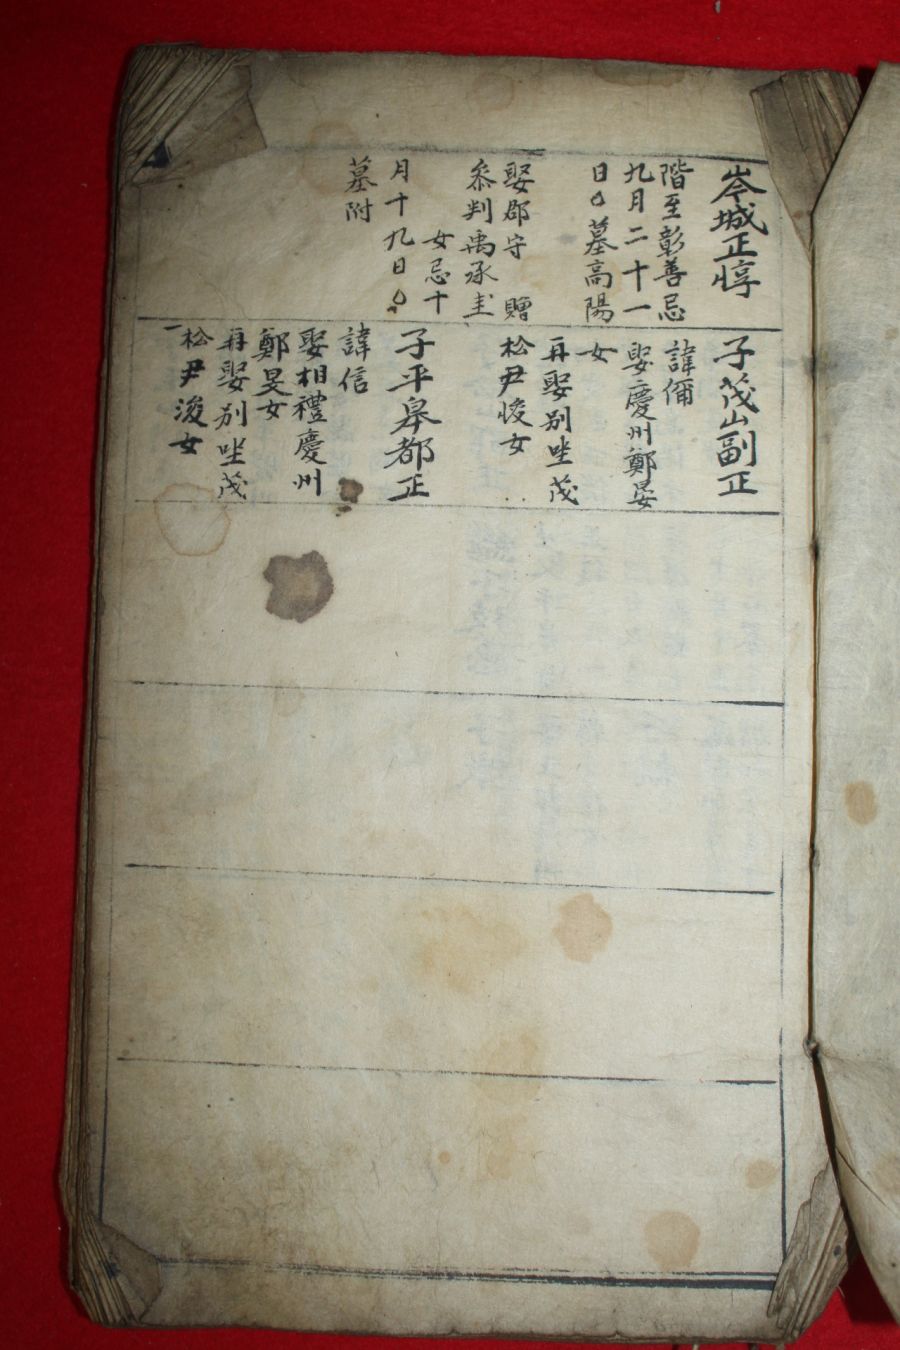 岑城正惇
階至彰善忌
九月二十一
日〇墓高陽
娶郡守 贈
參判禹承圭
女忌十
月十九日〇
墓附
子茂山副正
諱俻
娶慶州鄭晏
女
再娶別坐茂
松尹悛女
子平皋都正
諱信
娶相禮慶州
鄭旻女
再娶別坐茂
松尹浚女
一